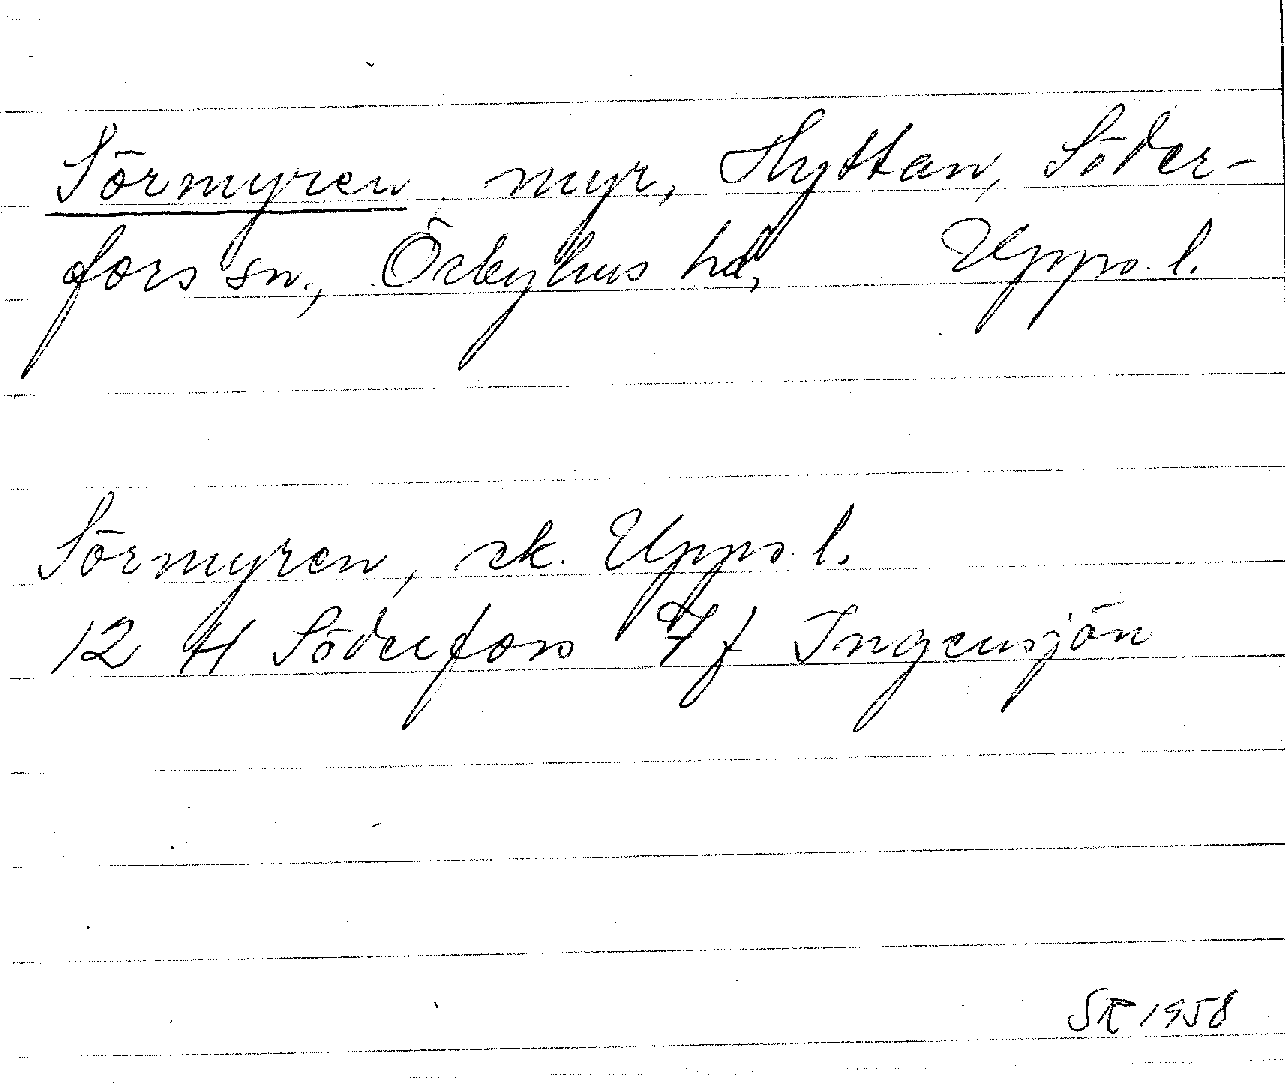 Sörmyren myr, Hyttan, Söder-
fors sn., Örbyhus hd, Upps. l.
Sörmyren, ek. Upps. l.
12 H Söderfors 7f Ingensjön
SR 1958